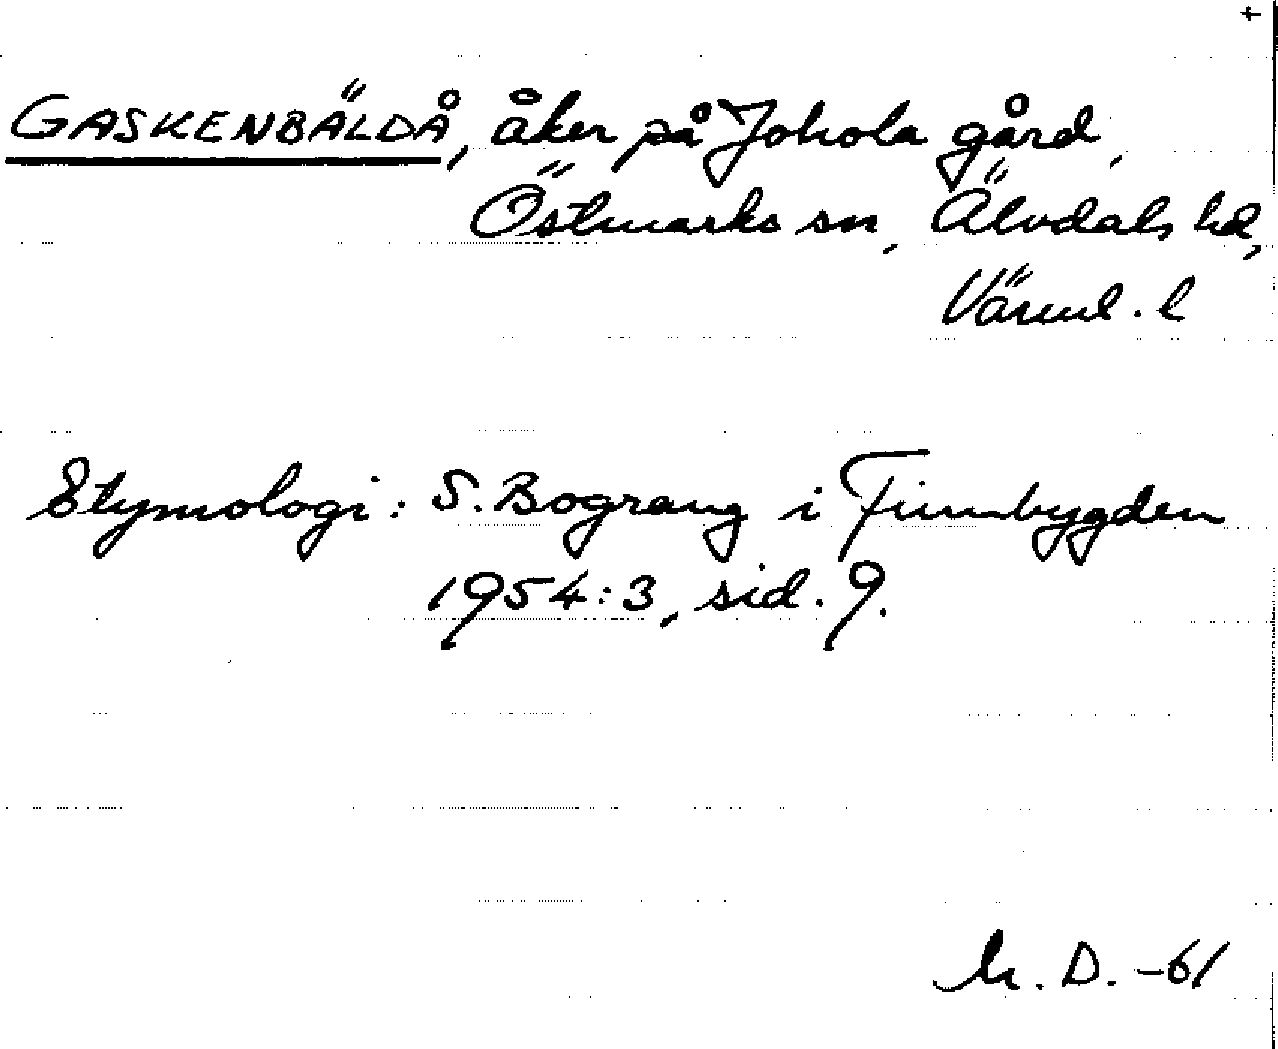 +
GASKENBÄLDÅ, åker på Johola gård,
Östmarks sn, Älvdals hd,
Värml. l
Etymologi: S. Bograng i Finnbygden
1954:3, sid. 9.
M. D. -61